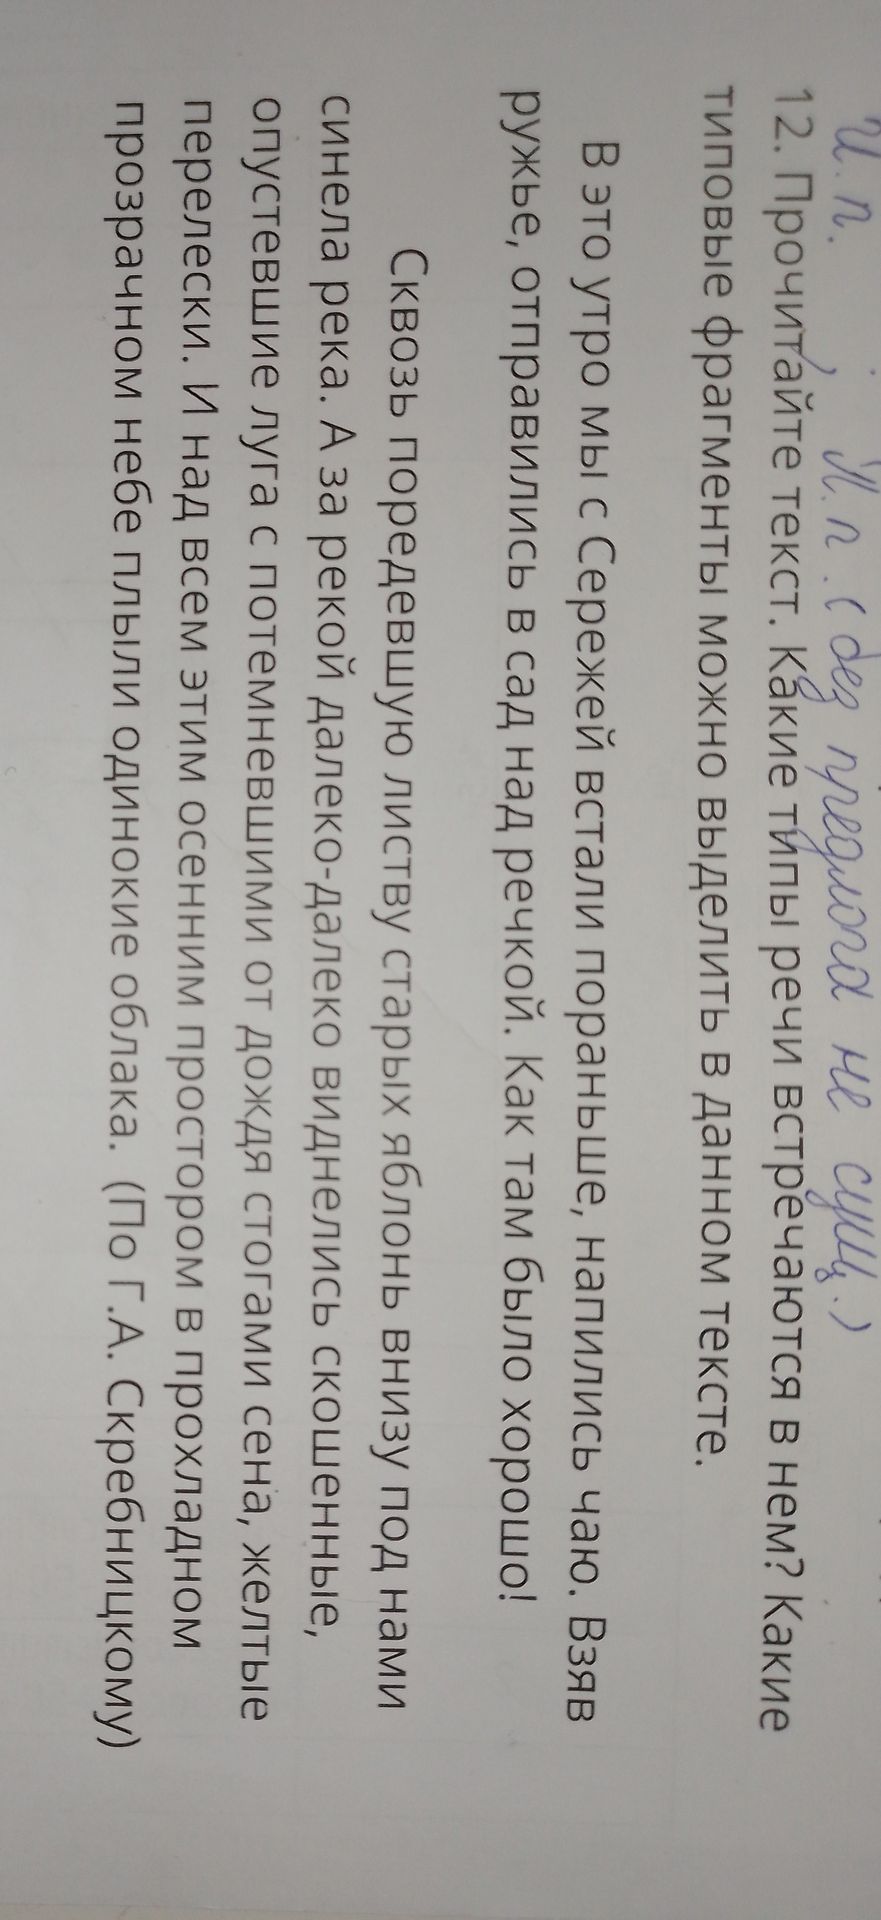 И. п. , П. п. (без предлога не сущ.)
12. Прочитайте текст. Какие типы речи встречаются в нем? Какие
типовые фрагменты можно выделить в данном тексте.
В это утро мы с Сережей встали пораньше, напились чаю. Взяв
ружье, отправились в сад над речкой. Как там было хорошо!
Сквозь поредевшую листву старых яблонь внизу под нами
синела река. А за рекой далеко-далеко виднелись скошенные,
опустевшие луга с потемневшими от дождя стогами сена, желтые
перелески. И над всем этим осенним простором в прохладном
прозрачном небе плыли одинокие облака. (По Г.А. Скребницкому)